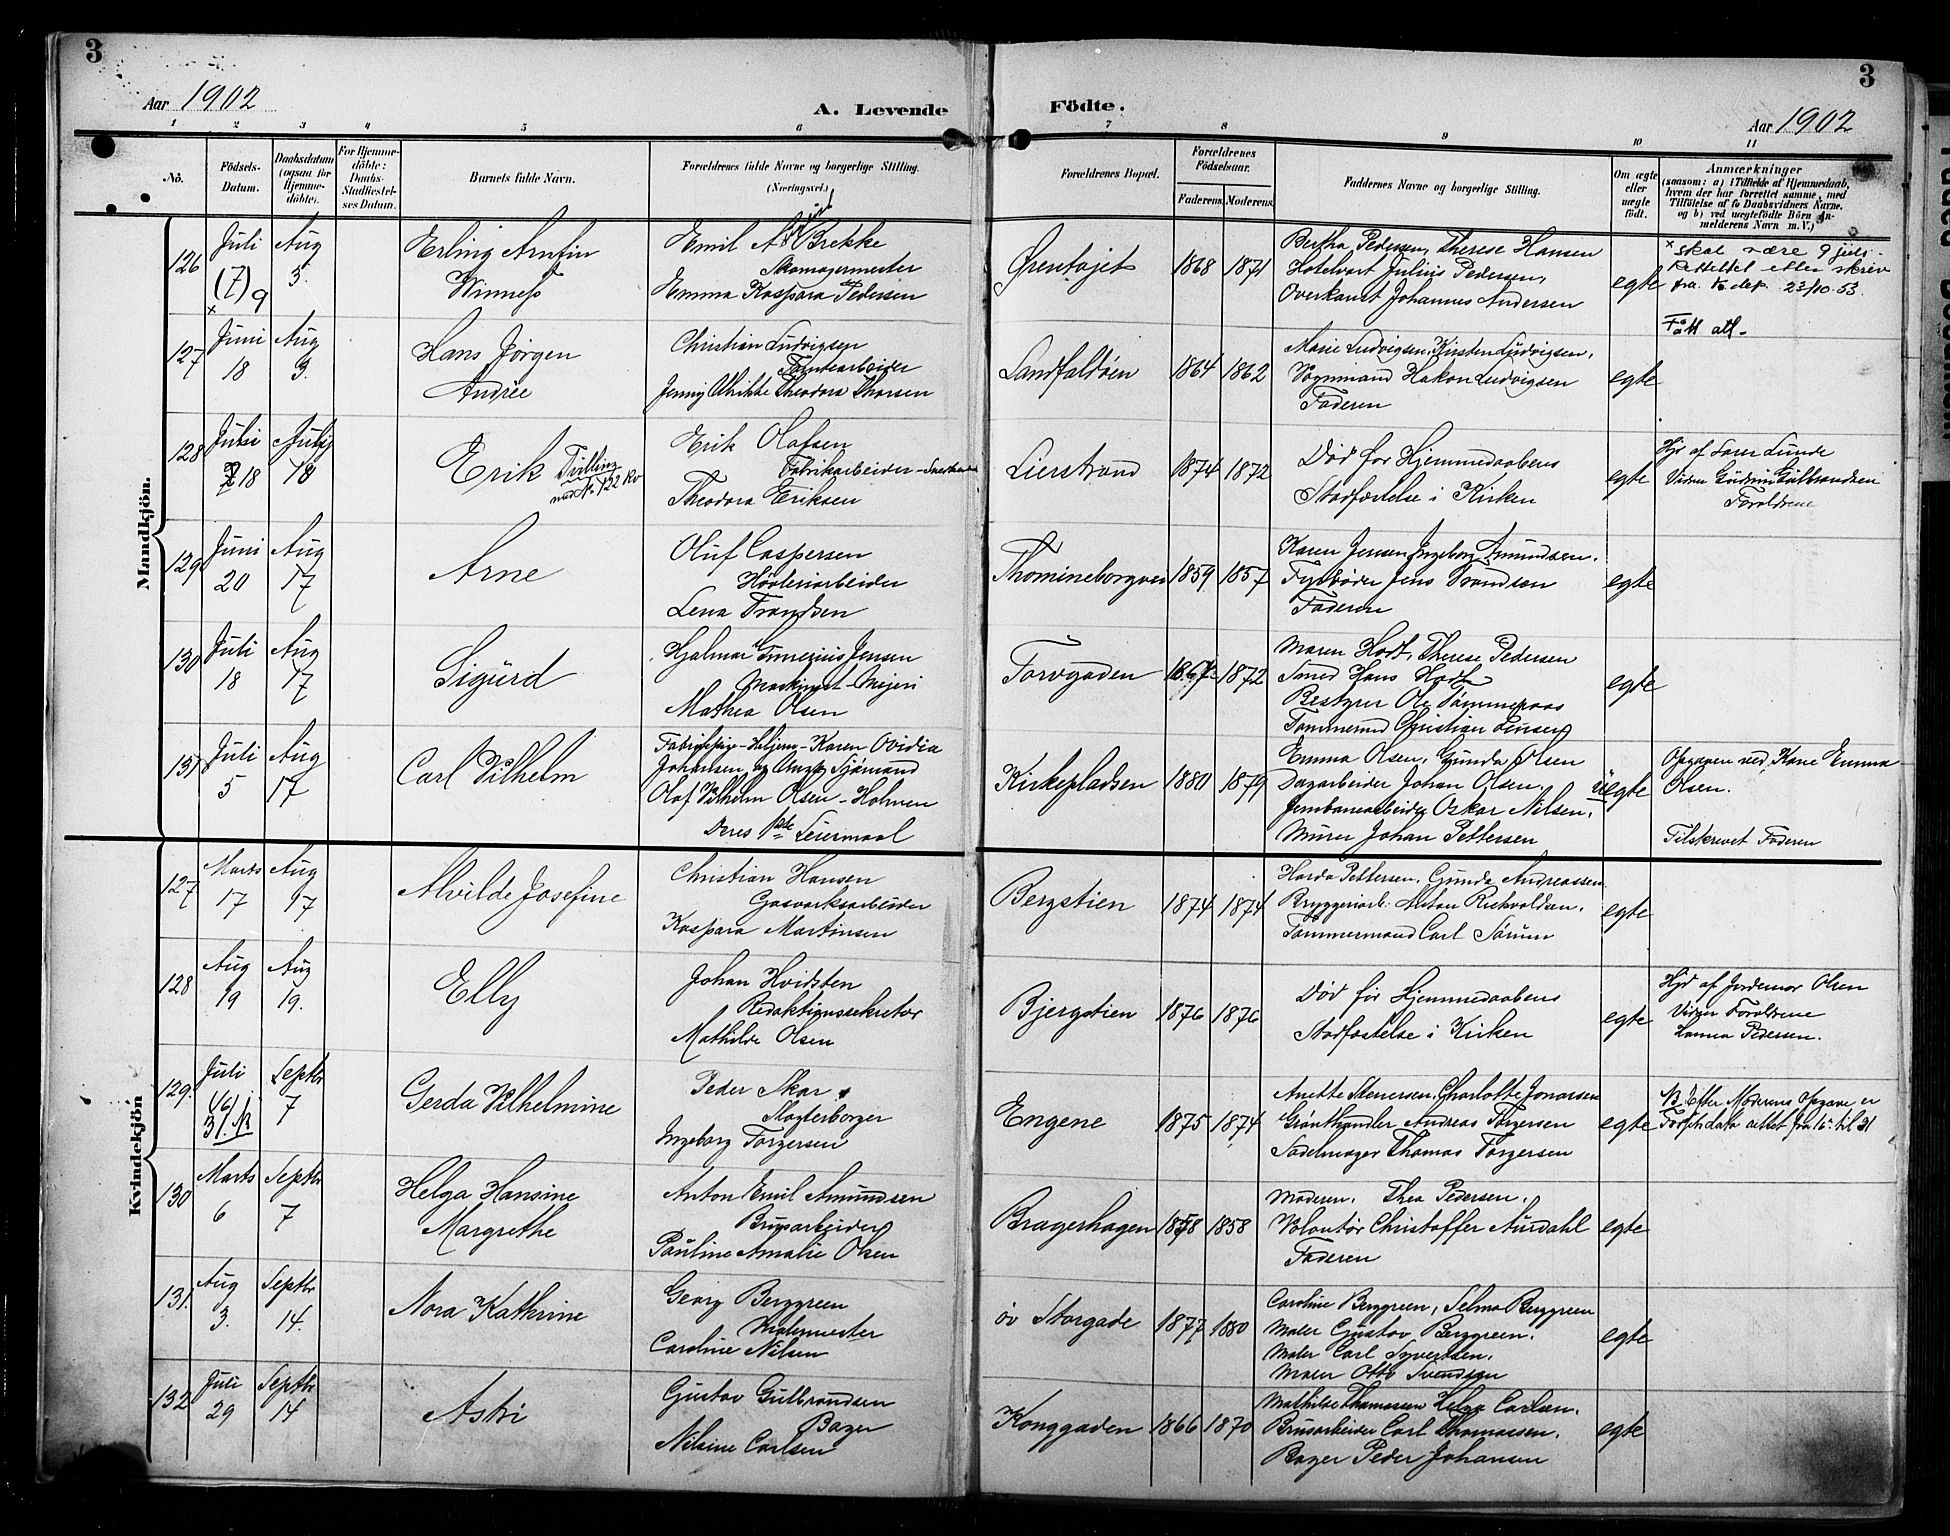 3
Aar 1902
A. Levende
Födte.
Aar 1902
3
1 2 3 4 5 6 7 8 9 10 11
No.
Födsels-Datum.
Daabsdatum (ogsaa for Hjemmedöbte).
For Hjemmedöbte: Daabs-Stadfæstelses Datum.
Barnets fulde Navn.
Forældrenes fulde Navne og borgerlige Stilling. (Næringsvei.)
Forældrenes Bopæl.
Forældrenes Födselsaar.
Faderens. Moderens.
Faddernes Navne og borgerlige Stilling.
Om ægte eller uægte födt.
Anmærkninger (saasom: a) i Tilfælde af Hjemmedaab, hvem der har forrettet samme, med Tilföielse af to Daabsvidners Navne, og b) ved uægtefödte Börn Anmelderens Navn m. V.)
Mandkjön.
126 Juli (7) 9 x Aug 3.
Erling Arnfin
Winness
Emil A Brekke
Skomagermester
Emma Kaspara Pedersen
Ørentøjet 1868 1871
Bertha Pedersen, Therese Hansen
Hotelvært Julius Pedersen,
Overkanst Johannes Andersen
egte
x skal være 9 juli.
Rettelse etter skriv
fra dep. 23/10.53.
Født att.
127 Juni 18 Aug 3.
Hans Jörgen
Andrée
Christian Ludvigsen
Jenny Ulrikke Theodora Thorsen
Landfaldøen 1864 1862
Marie Ludvigsen, Kirsten Ludvigsen,
Vognmand Hakon Ludvigsen
Faderen
egte
128 Juli 18 July 18
Erik Tvilling
med No 122 Kv
Erik Olafsen
Fabrikarbeider
Theodora Eriksen
Lierstrand 1874 1872
Död for Hjemmedaabens
Stadfæstelse i Kirken
egte
Hjd af Lærer Lunde
Vidner Gudrun Gulbrandsen
Foreldrene
129 Juni 20 Aug 17
Arne
Oluf Caspersen
Høvleriarbeider
Lena Trondsen
Thomineborgvei 1859 1857
Karen Jensen, Ingeborg Amundsen.
Fyrbøder Jens Trondsen
Faderen
egte
130 Juli 18 Aug 17
Sigurd
Hjalmar Jensen
Maskinist - Mejeri
Mathea Olsen
Torvgaden 1867 1872
Maren Hodt, Therese Pedersen
Smed Hans Hodt
Bestyrer Ole
Tømmermd Christian Jensen
egte
131 Juli 5 Aug 17
Carl Vilhelm
Fabrikspige - Karen Ovidia
Johansen og Ungk Sjömand
Olaf Vilhelm Olsen - Holmen
Deres 1ste Leiermaal
Kirkepladsen 1880 1879
Emma Olsen, Gunda Olsen
Dagarbeider Johan Olsen,
Jernbanearbeider Oskar Nilsen,
Murer Johan Pettersen
uegte
Opgaven ved Kone Emma
Olsen.
Tilskrevet Faderen
Kvindekjön
127 Marts 17 Aug 17
Alvilde Josefine
Christian Hansen
Gasværksarbeider
Kaspara Martinsen
Bergstien 1874 1874
Harda Pettersen, Gunda Andreassen
Bryggeriarb. Anton Rickvoldsen,
Tømmermand Carl Sørum
egte
128 Aug 19 Aug 19.
Elly
Johan Hvidsten
Redaktionssekretær
Mathilde Olsen
Bjergstien 1876 1876
Død før Hjemmedaabens
Stadfæstelse i Kirken
egte
Hjd af Jordemor Olsen
Vidner Foreldrene
Hanna Pedersen.
129. Juli 16/ 31. NB Septbr 7
Gerda Vilhelmine
Peder Skar
Slagterborger
Ingeborg Torgersen
Engene 1875 1874
Anette Stenersen, Charlotte Jonassen
Grønthandler Andreas Torgersen
Sadelmager Thomas Torgersen
egte
NB. Efter Moderens Opgave er
Fødselsdato rettet fra 16 til 31
130 Marts 6 Septbr 7
Helga Hansine
Margrethe
Anton Emil Amundsen
Brugsarbeider
Pauline Amalie Olsen
Brageshagen 1858 1858
Moderen, Thea Pedersen,
Volontør Christoffer Aurdahl
Faderen
egte
131. Aug 3. Septbr 14.
Nora Kathrine
Georg Berggreen
Malermester
Caroline Nilsen
öv Storgade 1877 1880
Caroline Berggreen, Selma Berggreen
Maler Gustav Berggreen,
Maler Carl Syvertsen,
Maler Otto Svendsen
egte
132 Juli 29 Septbr 14
Astri
Gustav Gulbrandsen
Bager
Nilsine Carlsen
Konggaden 1866 1870
Mathilde Thomassen Helga Carlsen,
Brusarbeider Carl Thomassen,
Bager Peder Johansen
egte